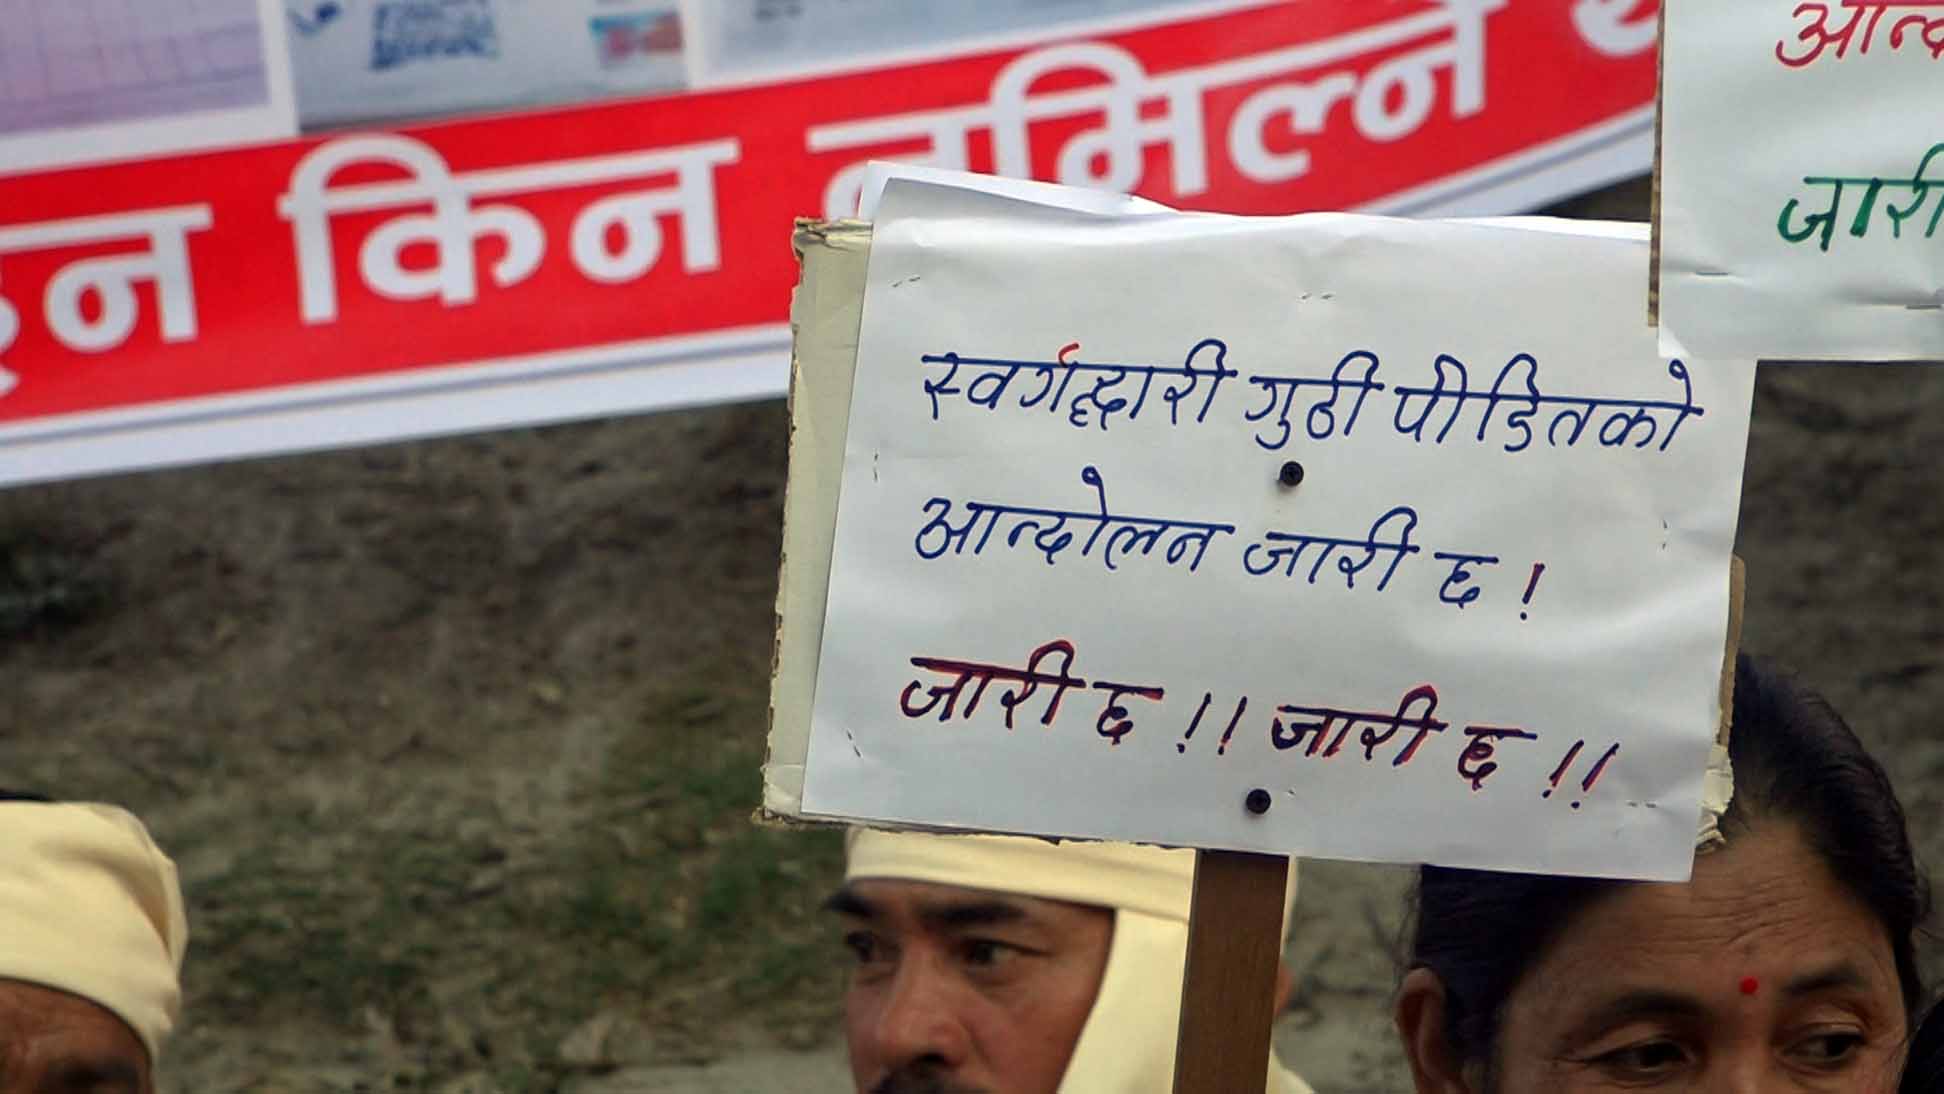 किन नमिल्ने
स्वर्गद्वारी गुठी पीडितको
आन्दोलन जारी छ !
जारी छ !! जारी छ !!
जारी